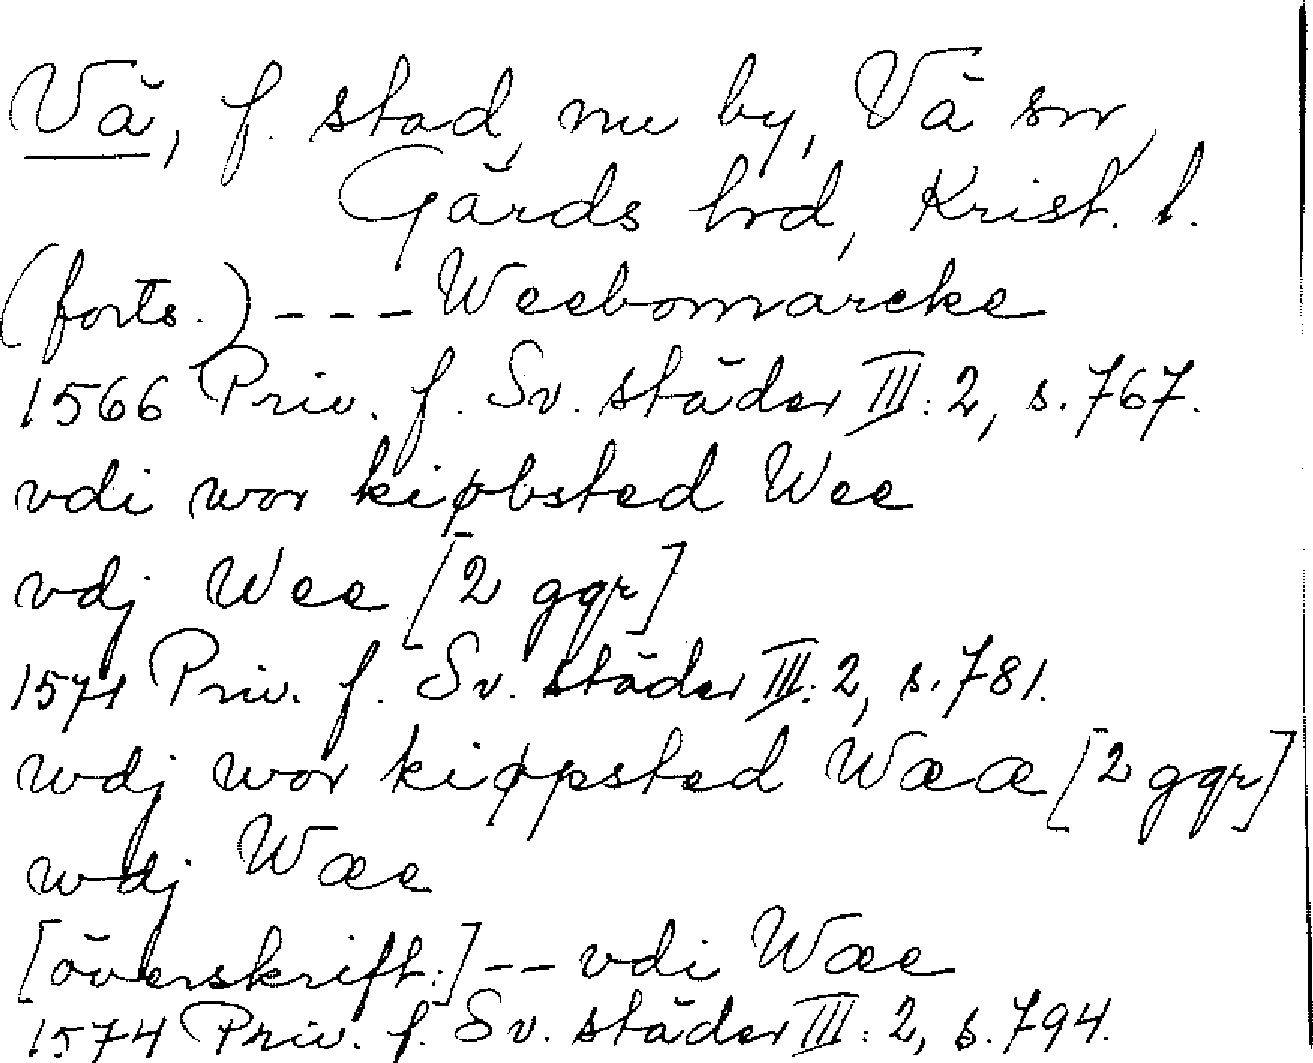 Vå, f. stad, nu by, Vå sn,
Gärds hrd, Krist. l.
(forts.) --- Weebomarcke
1566 Priv. f. Sv. städer III: 2, s. 767.
vdi wor kiøbsted Wee
vdj Wee [2 ggr]
1571 Priv. f. Sv. städer III: 2, s. 781.
wdj wor kiøpsted Wææ [2 ggr]
wdj Wæe
[överskrift:] -- vdi Wæe
1574 Priv. f. Sv. städer III: 2, s. 794.